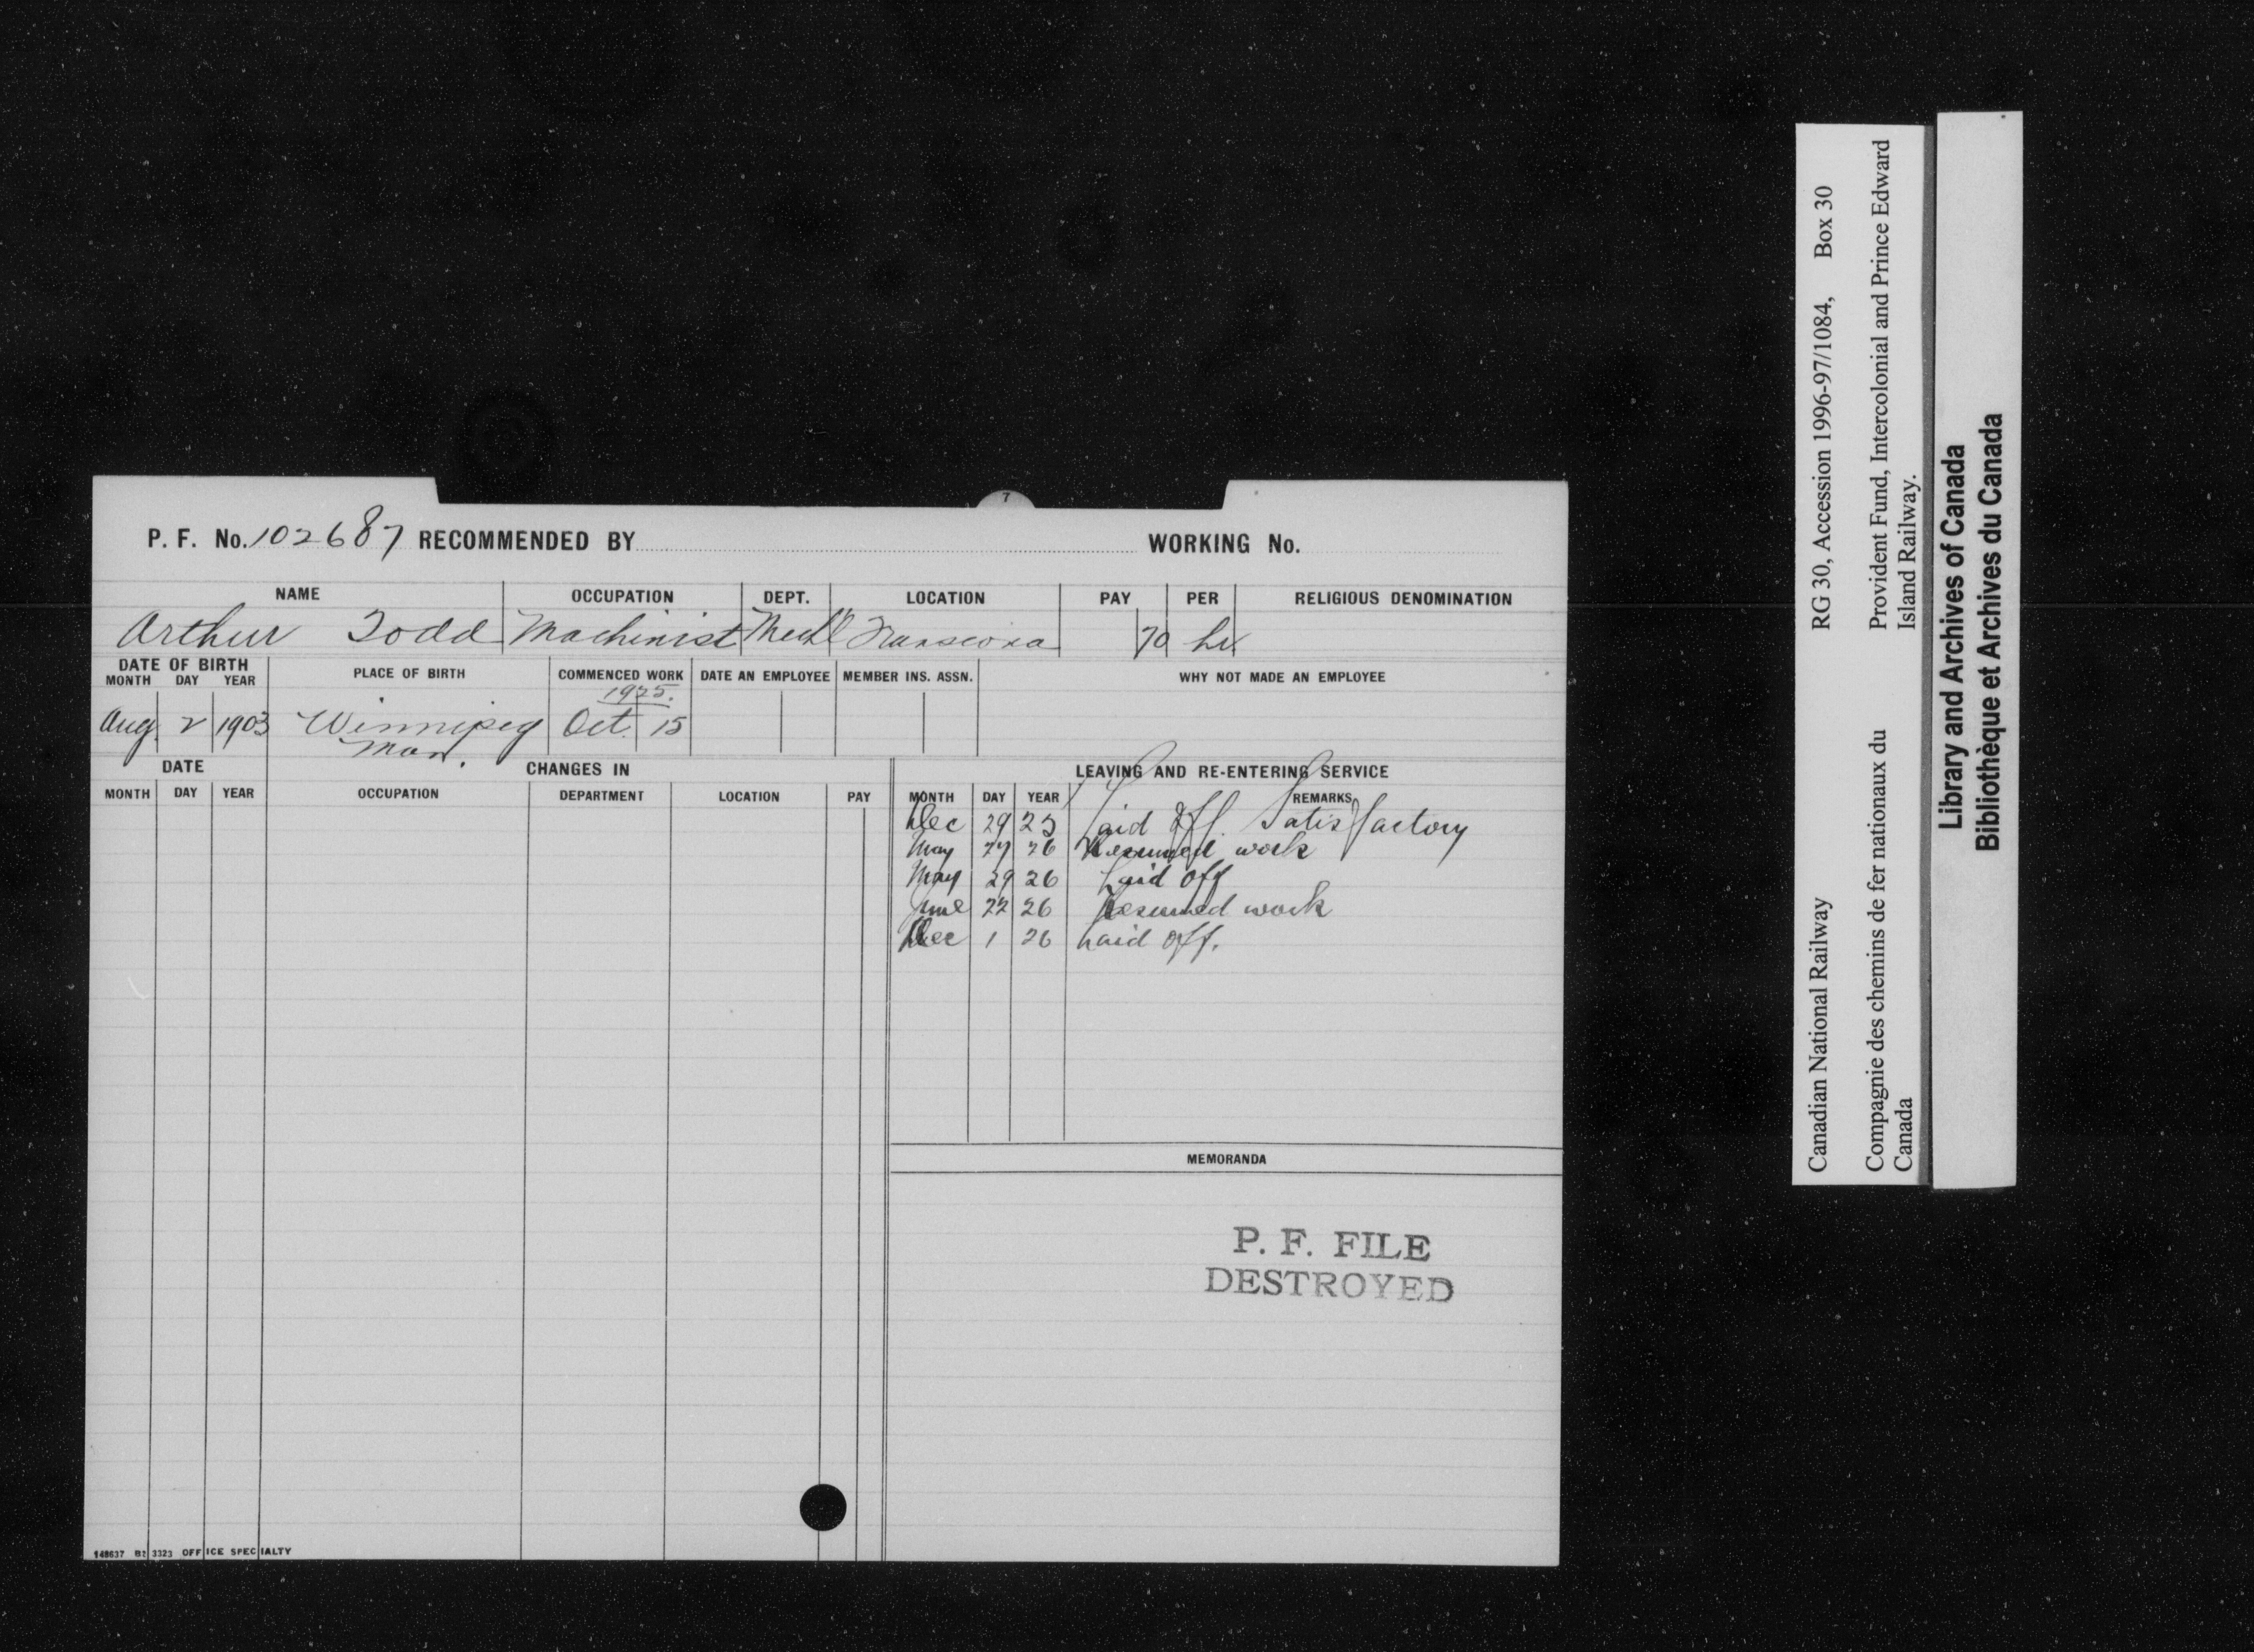 7
P. F. No. 102687 RECOMMENDED BY WORKING No.
NAME OCCUPATION DEPT. LOCATION PAY PER RELIGIOUS DENOMINATION
Arthur Todd Machinist Mechl Transcona 70 hr
DATE OF BIRTH PLACE OF BIRTH COMMENCED WORK DATE AN EMPLOYEE MEMBER INS. ASSN. WHY NOT MADE AN EMPLOYEE
MONTH DAY YEAR
1925.
Aug. 2 1903 Winnipeg Oct. 15
Man.
DATE CHANGES IN LEAVING AND RE-ENTERING SERVICE
MONTH DAY YEAR OCCUPATION DEPARTMENT LOCATION PAY MONTH DAY YEAR REMARKS
Dec 29 25 Laid Off. Satisfactory
May 27 26 Resumed work
May 29 26 Laid Off
June 22 26 Resumed work
Dec 1 26 Laid Off.
MEMORANDA
P. F. FILE
DESTROYED
148637 3323 OFFICE SPECIALTY
Canadian National Railway RG 30, Accession 1996-97/1084, Box 30
Compagnie des chemins de fer nationaux du Provident Fund, Intercolonial and Prince Edward
Canada Island Railway.
Library and Archives of Canada
Bibliothèque et Archives du Canada